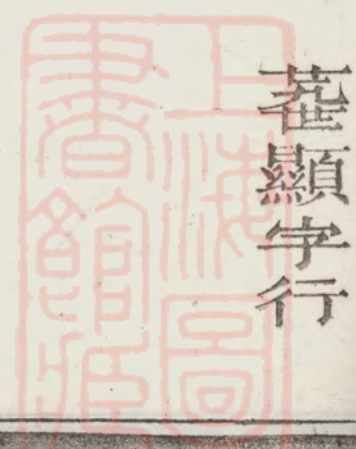 顯字行
上海圖
書館